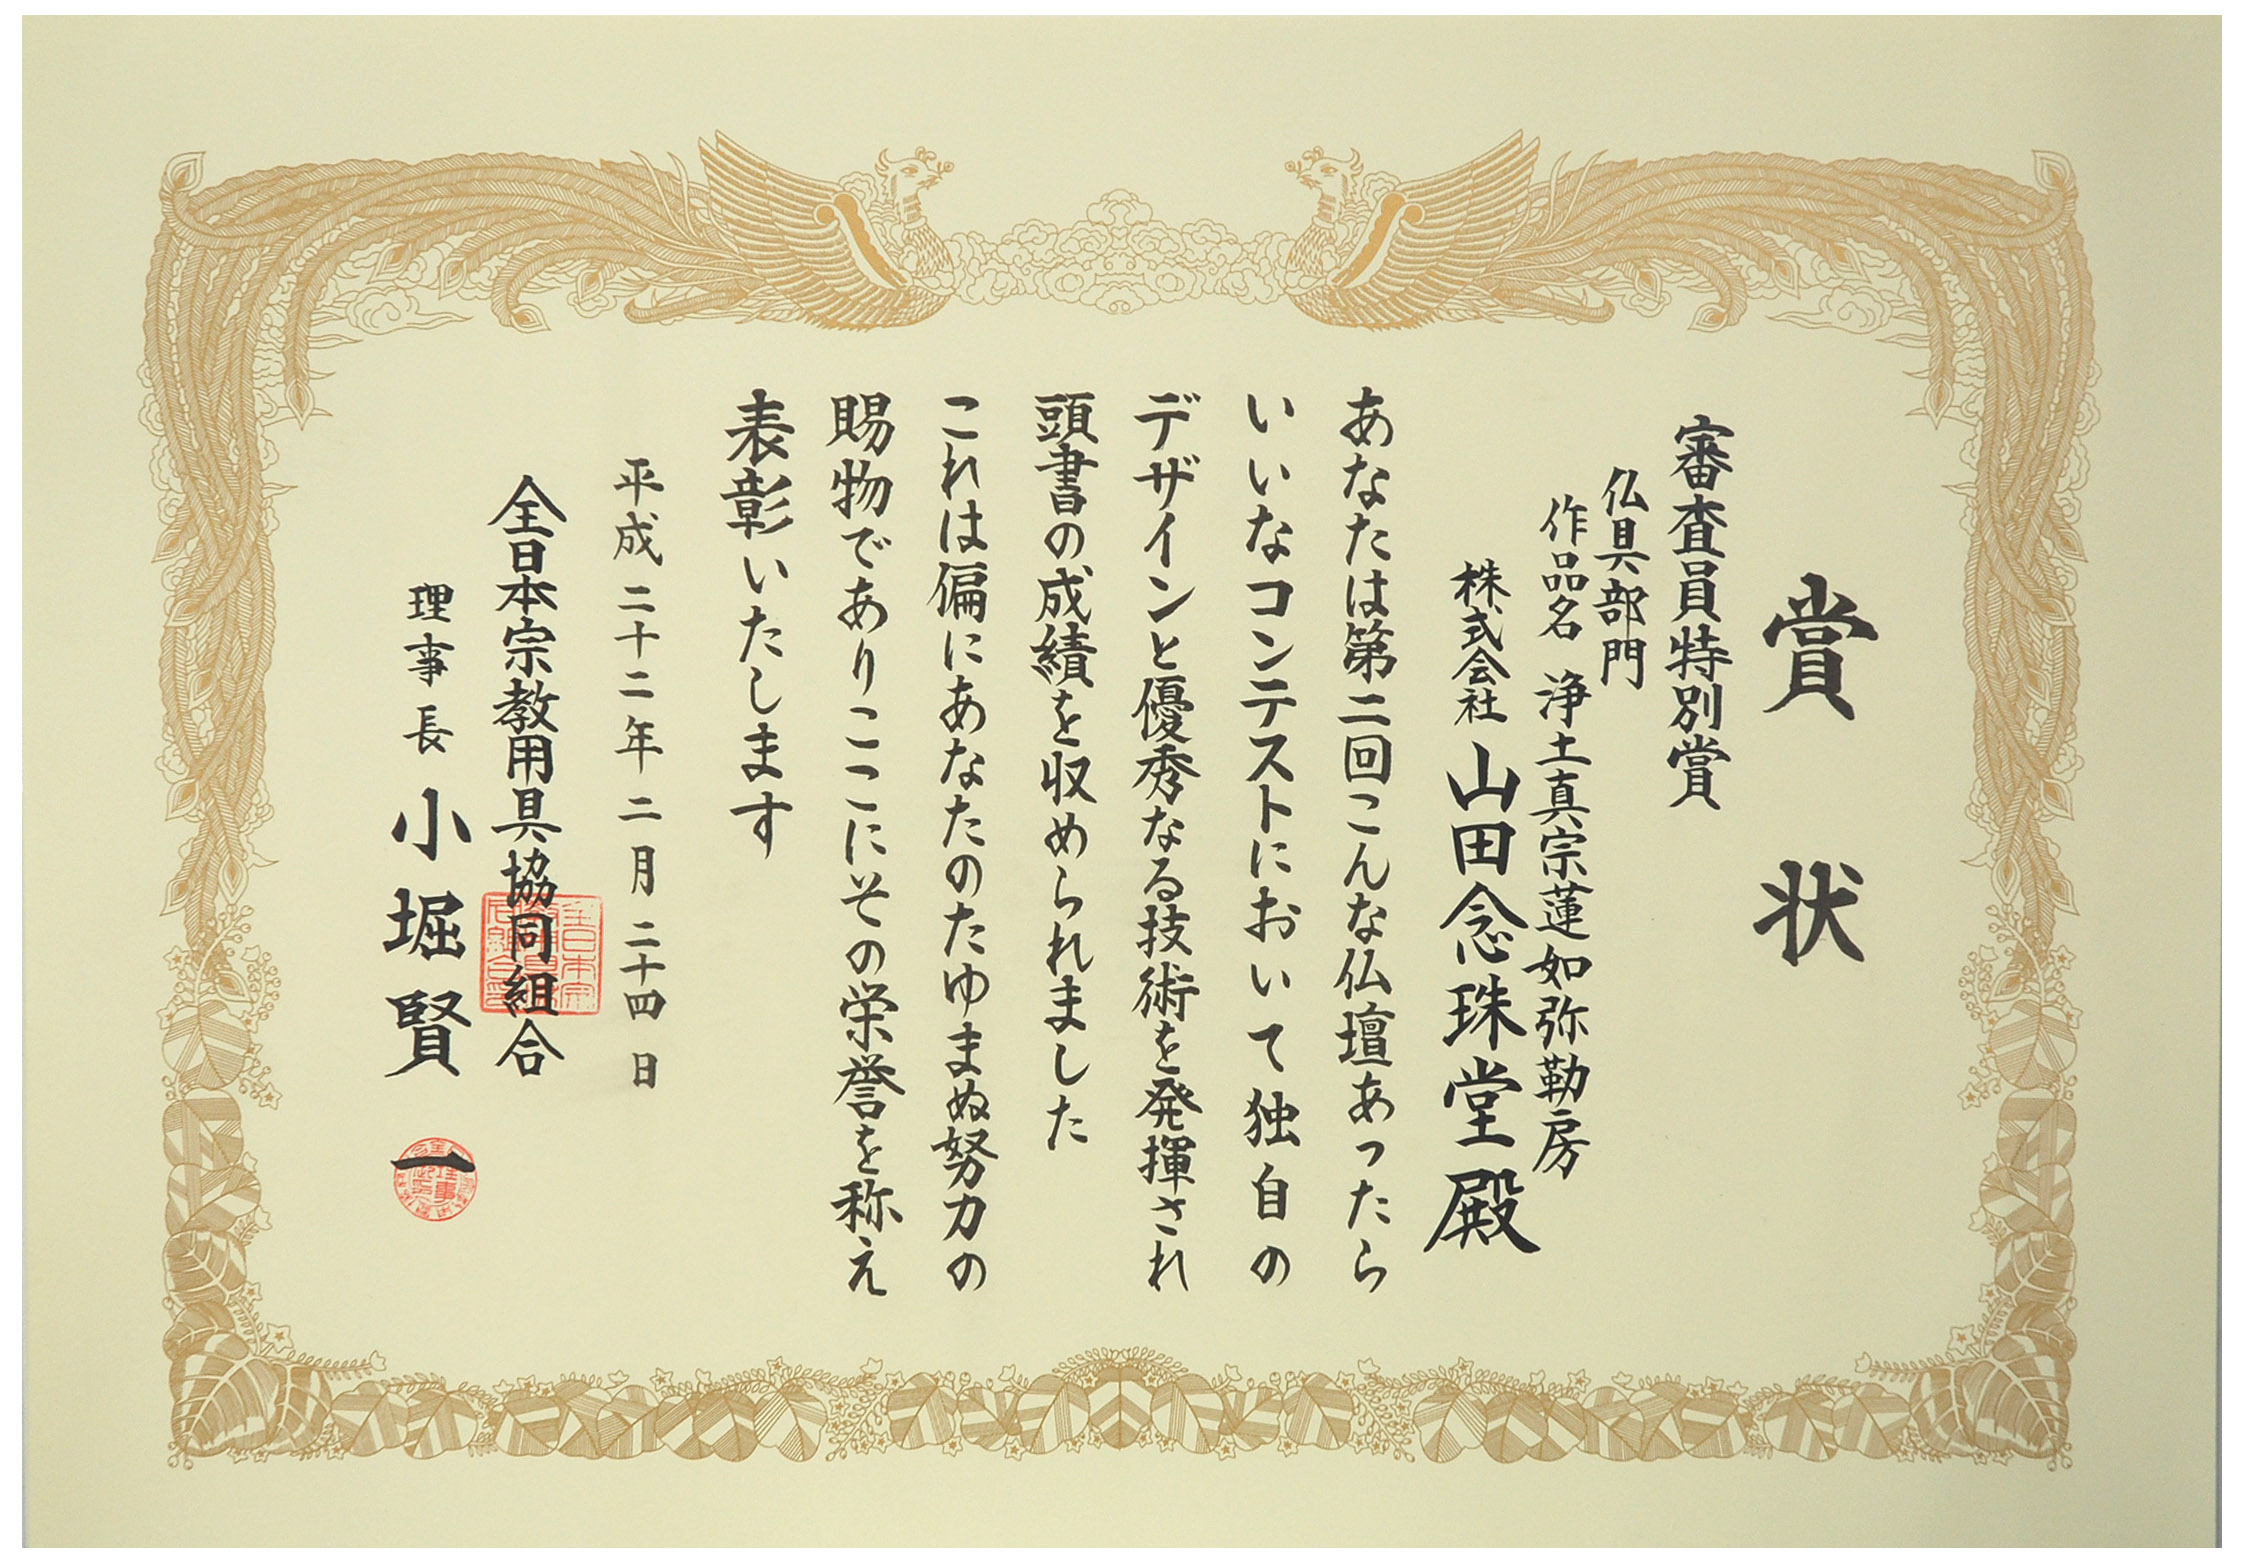 賞状
審査員特別賞
仏具部門
作品名 浄土真宗蓮如弥勒房
株式会社 山田念珠堂殿
あなたは第二回こんな仏壇あったら
いいなコンテストにおいて独自の
デザインと優秀なる技術を発揮され
頭書の成績を収められました
これは偏にあなたのたゆまぬ努力の
賜物でありここにその栄誉を称え
表彰いたします
平成二十二年二月二十四日
全日本宗教用具協同組合
理事長 小堀賢一